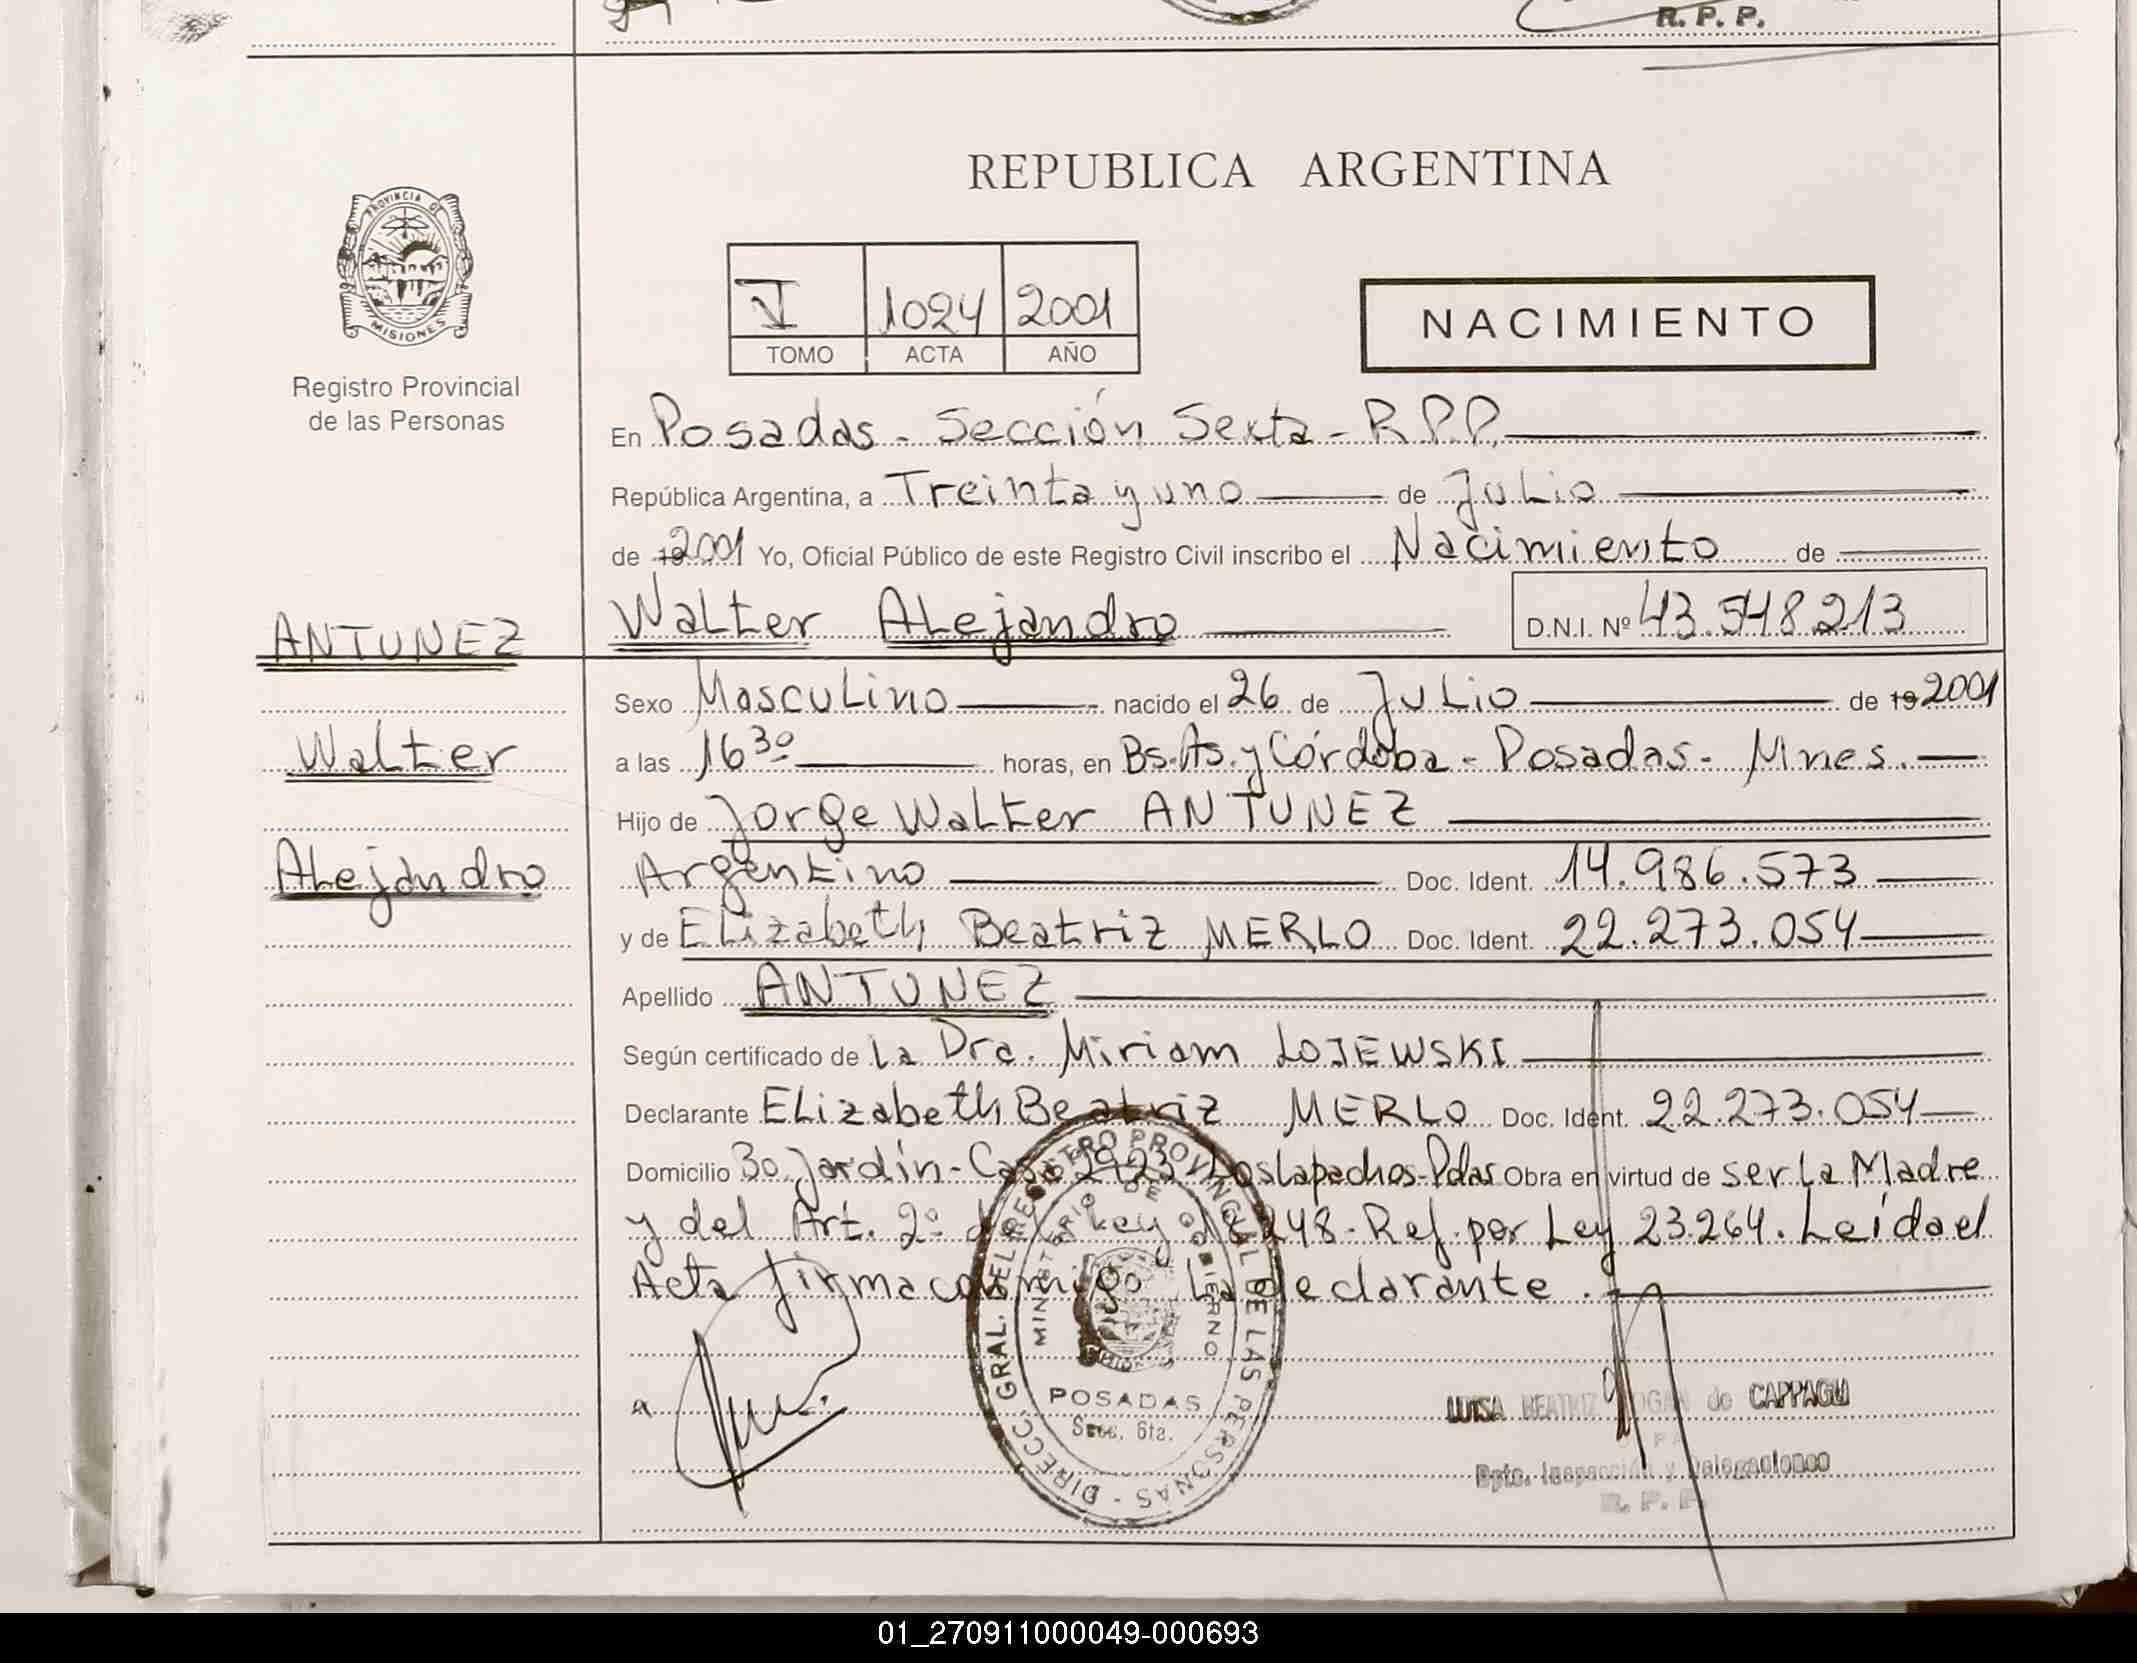 R. P. P.
REPUBLICA ARGENTINA
PROVINCIA DE
MISIONES
Registro Provincial
de las Personas
1024 2001
TOMO ACTA AÑO
NACIMIENTO
En Posadas - Sección Sexta - R.P.P.
República Argentina, a Treinta y uno de Julio
de 2001 Yo, Oficial Público de este Registro Civil inscribo el Nacimiento de
ANTUNEZ
Walter Alejandro D.N.I. Nº 43.548.213
Sexo Masculino nacido el 26 de Julio de 19 2001
Walter
a las 16³⁰ horas, en Bs.As. y Córdoba - Posadas - Mnes.
Hijo de Jorge Walter ANTUNEZ
Alejandro
Argentino Doc. Ident. 14.986.573
y de Elizabeth Beatriz MERLO Doc. Ident. 22.273.054
Apellido ANTUNEZ
Según certificado de La Dra. Miriam LOJEWSKI
Declarante Elizabeth Beatriz MERLO Doc. Ident. 22.273.054
Domicilio Bo. Jardín - Casa 2923 Los Lapachos - Pdas Obra en virtud de ser La Madre
y del Art. 2º de Ley 18248 - Ref. por Ley 23.264. Leída el
Acta firma conmigo La declarante.
DIRECC. GRAL. DEL REGISTRO PROVINCIAL DE LAS PERSONAS
MINISTERIO DE GOBIERNO
POSADAS
Secc. 6ta.
LUISA BEATRIZ de CAPPAGLI
Dpto. Inspección y Delegaciones
R. P. P.
01_270911000049-000693